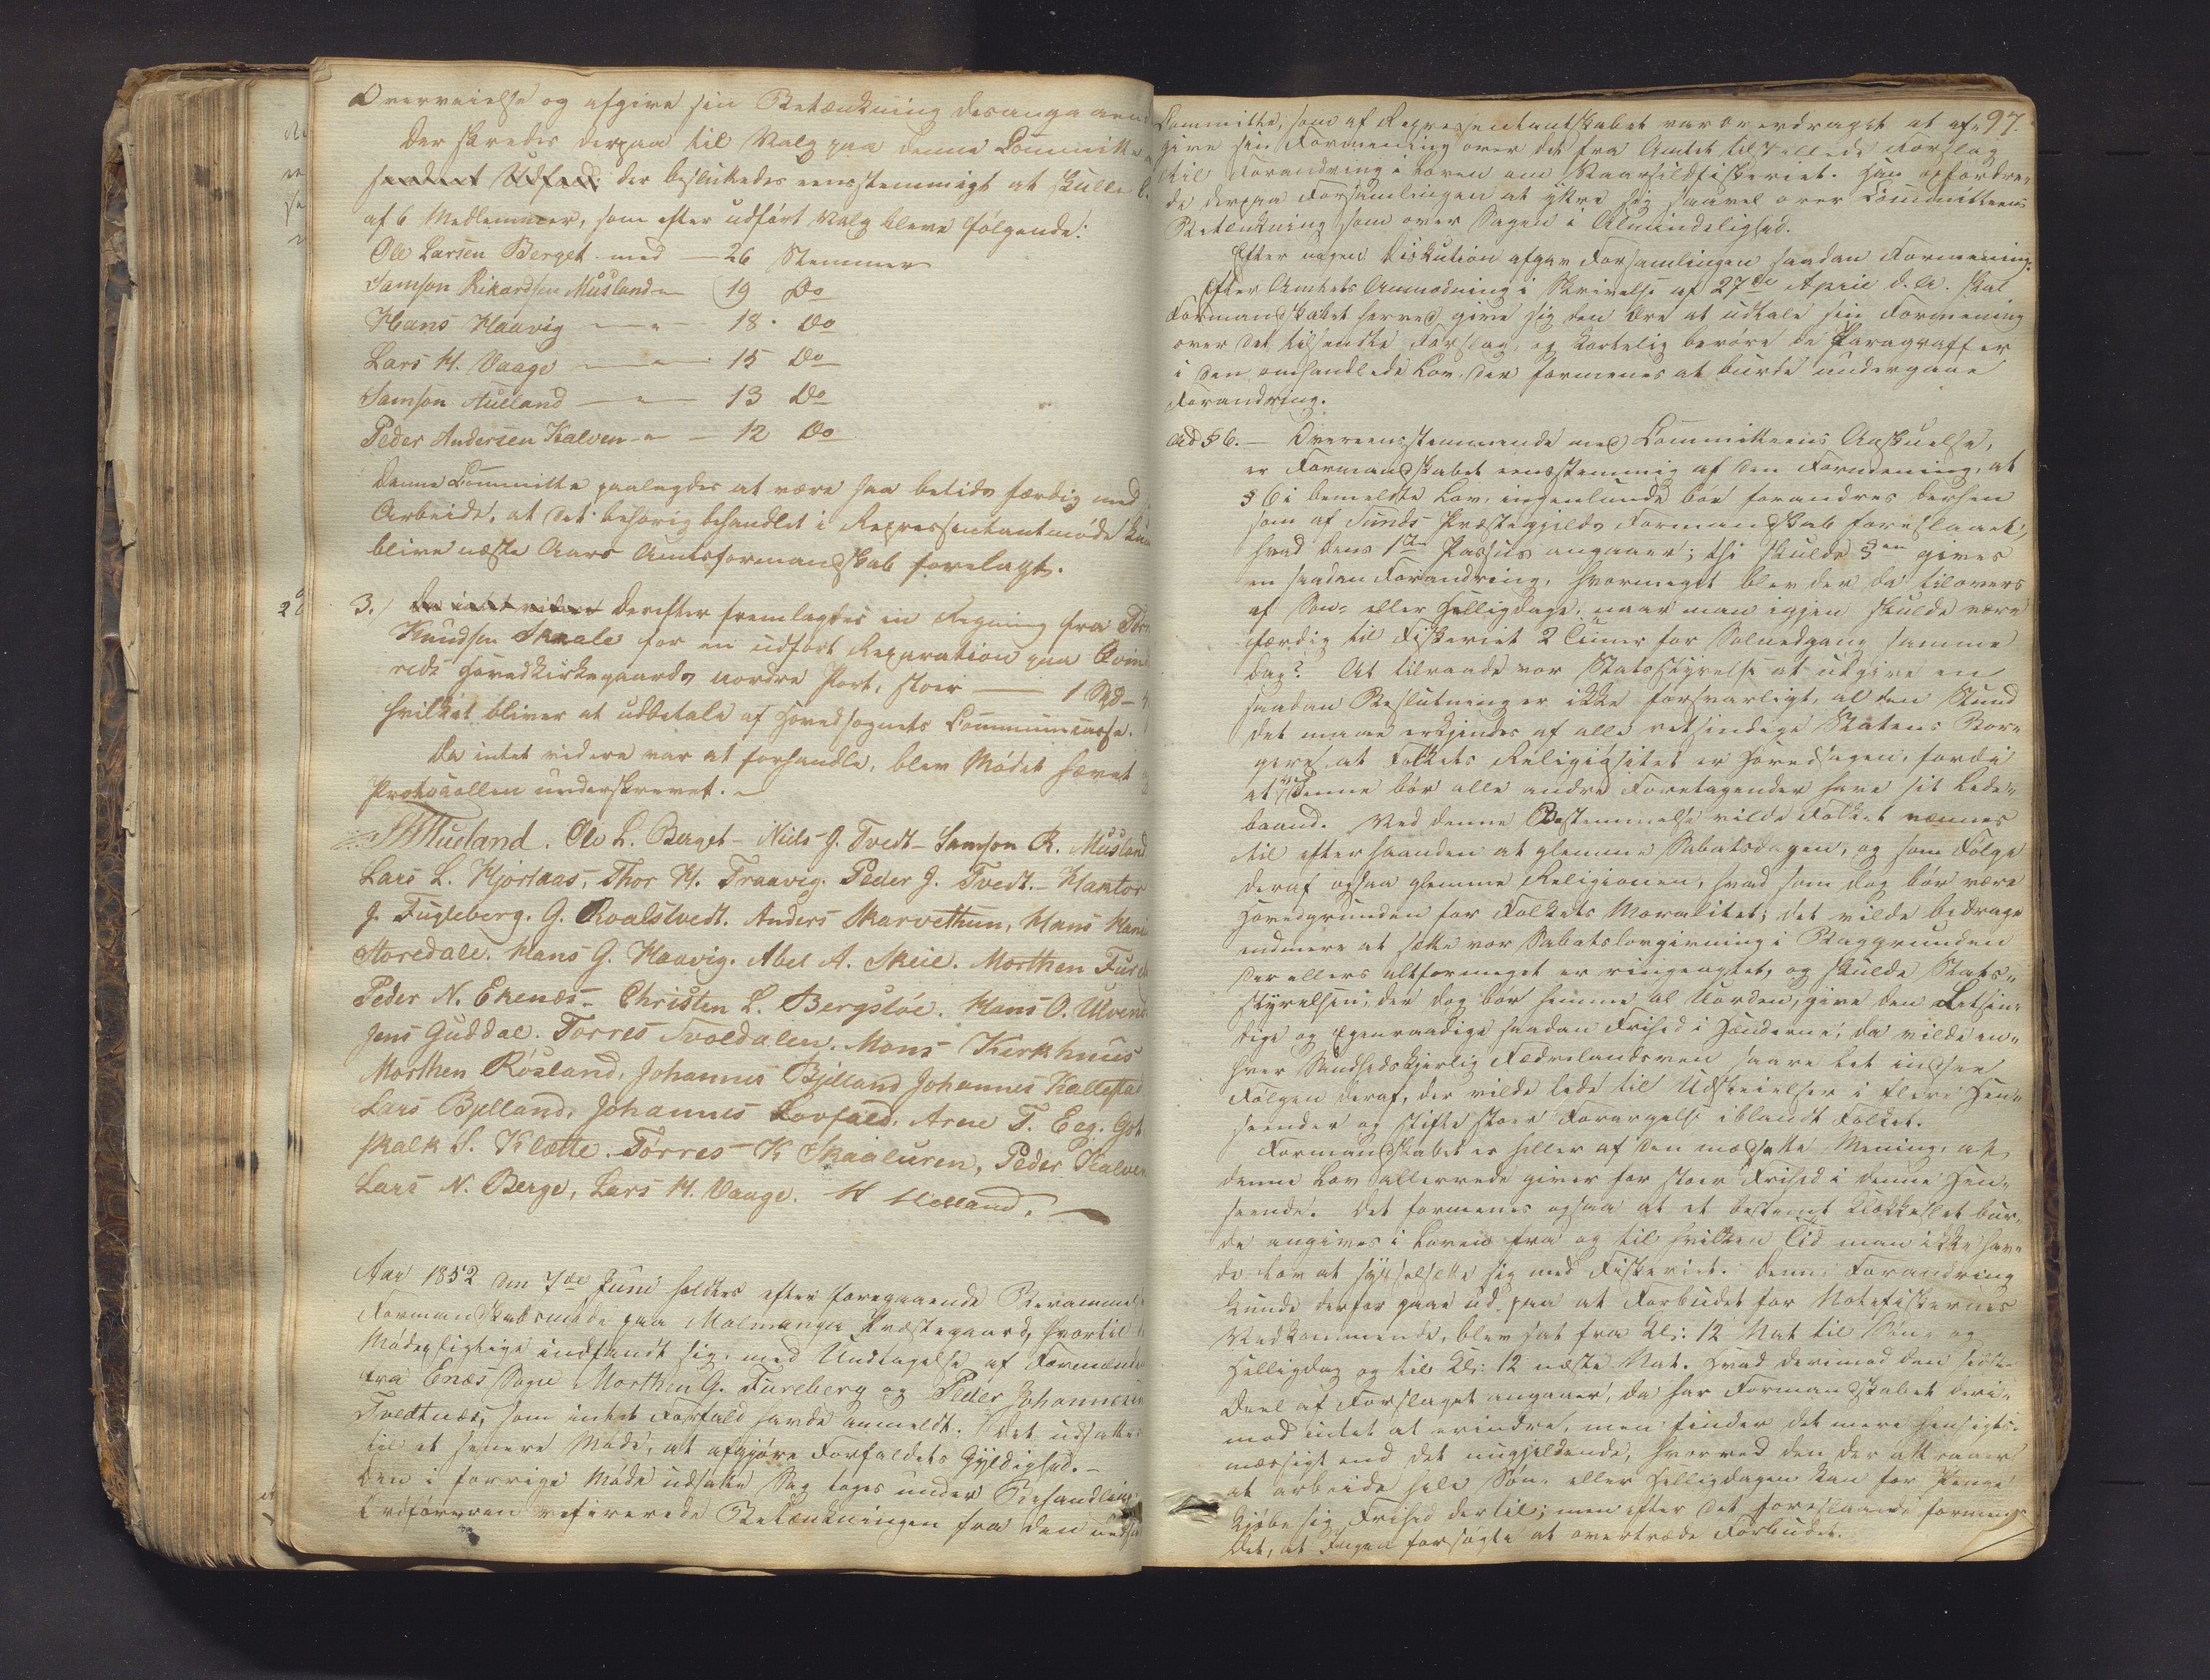 Overveielse og afgive sin Betænkning desangaaen
Der skredes derpaa til Valg paa denne Committe
der besluttedes eensstemmigt at skulle b
af 6 Medlemmer, som efter udført Valg bleve følgende:
Ole Larsen Berget med — 26 Stemmer
Samson Rikardsen Musland — " — 19 Do
Hans Haavig — " — 18 Do
Lars H. Vaage — " — 15 Do
Samson Aulland — " — 13 Do
Peder Andersen Kalven — " — 12 Do
Denne Committe paalagdes at være saa betids færdig med
Arbeide, at det behørig behandlet i Repræsentantmøde kun
blive næste Aars Amtsformandskab forelagt.
3. Da intet videre Derefter fremlagdes en Regning fra Tor
Knudsen Skaale for en udført Reparation paa Qvin
reds Hovedkirkegaards nordre Port, stor — 1 Spd
hvilket bliver at udbetale af Hovedsognets Communecasse.
Da intet videre var at forhandle, blev Mødet hævet
Protocollen underskrevet.
Ole L. Berget – Niels J. Tvedt – Samson R. Musland
Lars L. Hjortaas, Thor H. Traavig. Peder J. Tvedt. – Kantor
J. Fugleberg. G. Roalstvedt. Anders Skarvethun, Hans Han
Storedale. Hans G. Haavig. Abel A. Skeie. Morthen Fure
Peder N. Ekenæs – Christen L. Bergstøe. Hans O. Ulven
Jens Guddal. Torres Svoldalen. Mons Kirkhuus
Morthen Røsland, Johannes Bjelland Johannes Kaltesta
Lars Bjelland, Johannes Lovfald. Arne T. Eeg. Got
skalk S. Klætte. Tørres K Skaaluren, Peder Kalven
Lars N. Berge, Lars H. Vaage. H Helland.
Aar 1852 den 7de Juni holdtes efter foregaaende Berammelse
Formandskabsmøde paa Malmanger Præstegaard, hvortil
Mødepligtige indfandt sig, med Undtagelse af Formænde
fra Enæs Sogn Morthen G. Fureberg og Peder Johannesen
Tvedtnæs, som intet Forfald havde anmeldt. Det udsattes
til et senere Møde, at afgjøre Forfaldets Gyldighed. –
Den i forrige Møde udsatte Sag toges under Behandling
Ordføreren refererede Betænkningen fra den neds
97.
Committe, som af Repræsentantskabet var overdraget at af-
give sin Formening over det fra Amtet tilstillede Forslag
til Forandring i Loven om Vaarsildfiskeriet. Han opfordre-
de derpaa Forsamlingen at yttre sig saavel over Committeens
Betænkning som over Sagen i Almindelighed.
Efter nogen Diskution afgav Forsamlingen saadan Formening:
Efter Amtets Anmodning i Skrivelse af 27de April d. A. skal
Formandskabet herved give sig den Ære at udtale sin Formening
over det tilsendte Forslag, og kortelig berøre de Paragraffer
i den omhandlede Lov, der formenes at burde undergaae
Forandring.
Ad § 6. – Overeensstemmende med Committeens Anskuelse,
er Formandskabet eensstemmig af den Formening, at
§ 6 i bemeldte Lov, ingenlunde bør forandres dersen
som af Sunds Præstegjelds Formandskab foreslaaet,
hvad dens 1ste Passus angaaer; thi skulde §en gives
en saadan Forandring, hvormeget blev der da tilovers
af Søn- eller Helligdage, naar man igjen skulde være
færdig til Fiskeriet 2 Timer før Solnedgang samme
Dag? At tilraade vor Statsstyrelse at udgive en
saadan Beslutning er ikke forsvarligt, al den Stund
det maae erkjendes af alle retsindige Statens Bor-
gere, at Folkets Religiøsitet er Hovedsagen, fordi
at ved denne bør alle andre Foretagender have sit Lede-
baand. Ved denne Bestemmelse vilde Folket vænnes
til efterhaanden at glemme Sabatsdagen, og som Følge
deraf ogsaa glemme Religionen, hvad som dog bør være
Hovedgrunden for Folkets Moralitet; det vilde bidrage
endmere at sætte vor Sabatslovgivning i Baggrunden
der ellers altformeget er ringeagtet, og skulde Stats-
styrelsen, der dog bør hemme al Uorden, give den Letsin-
dige og Egenraadige saadan Frihed i Hænderne, da vilde en-
hver Sandhedskjerlig Fædrelandsven saare let indsee
Følgen deraf, der vilde lede til Udskeielser i flere Hen-
seender og stifte stor Forargelse iblandt Folket.
Formandskabet er heller af den modsatte Mening, at
denne Lov allerrede giver for stor Frihed i denne Hen-
seende. Det formenes ogsaa at et bestemt Klokkeslet bur-
de angives i Loven fra og til hvilken Tid man ikke hav-
de Lov at sysselsætte sig med Fiskeriet. Denne Forandring
kunde derfor gaae ud paa at Forbudet for Notefiskernes
Vedkommende, blev sat fra Kl: 12 Nat til Søn- og
Helligdag og til Kl: 12 næste Nat. Hvad derimod den sidste
Deel af Forslaget angaaer, da har Formandskabet deri-
mod intet at erindre, men finder det mere hensigts-
mæssigt end det nugjeldende, hvorved den der attraaer
at arbeide hele Søn- eller Helligdagen kan for Penge
kjøbe sig Frihed dertil; men efter det foreslaaede formenes
det, at Ingen forsøgte at overtræde Forbudet.